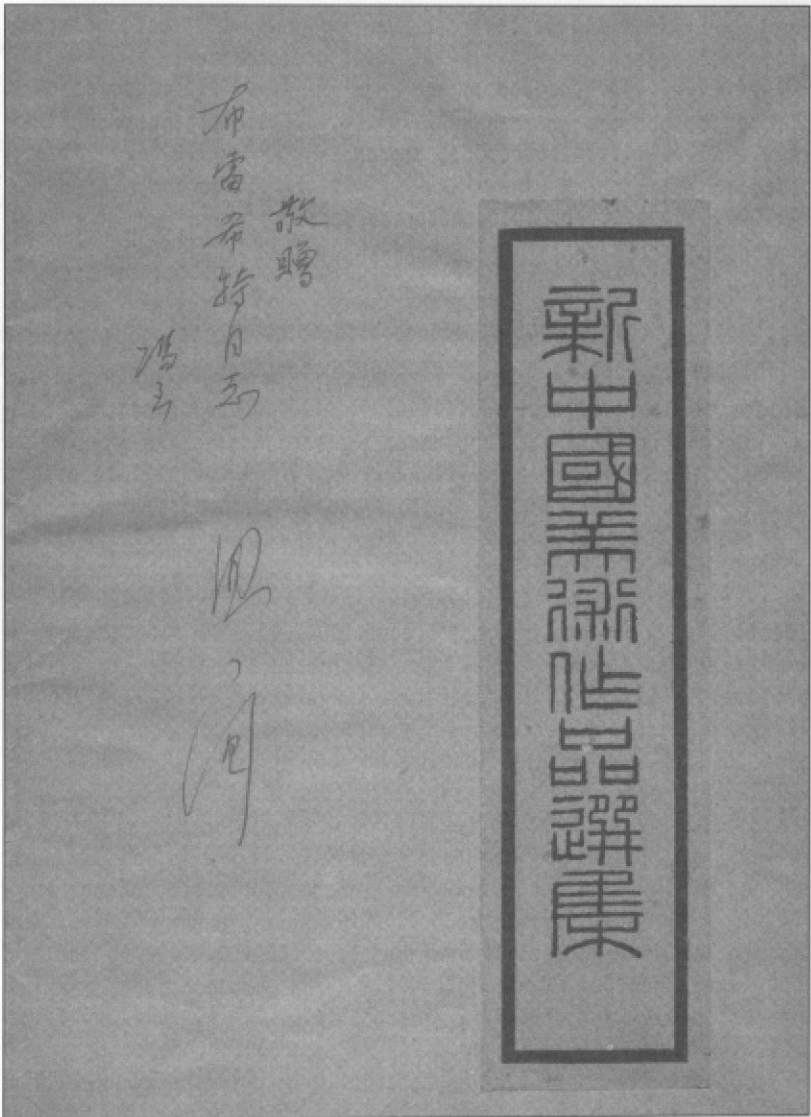 新中國美術作品選集
敬贈
布雷希特同志
冯至